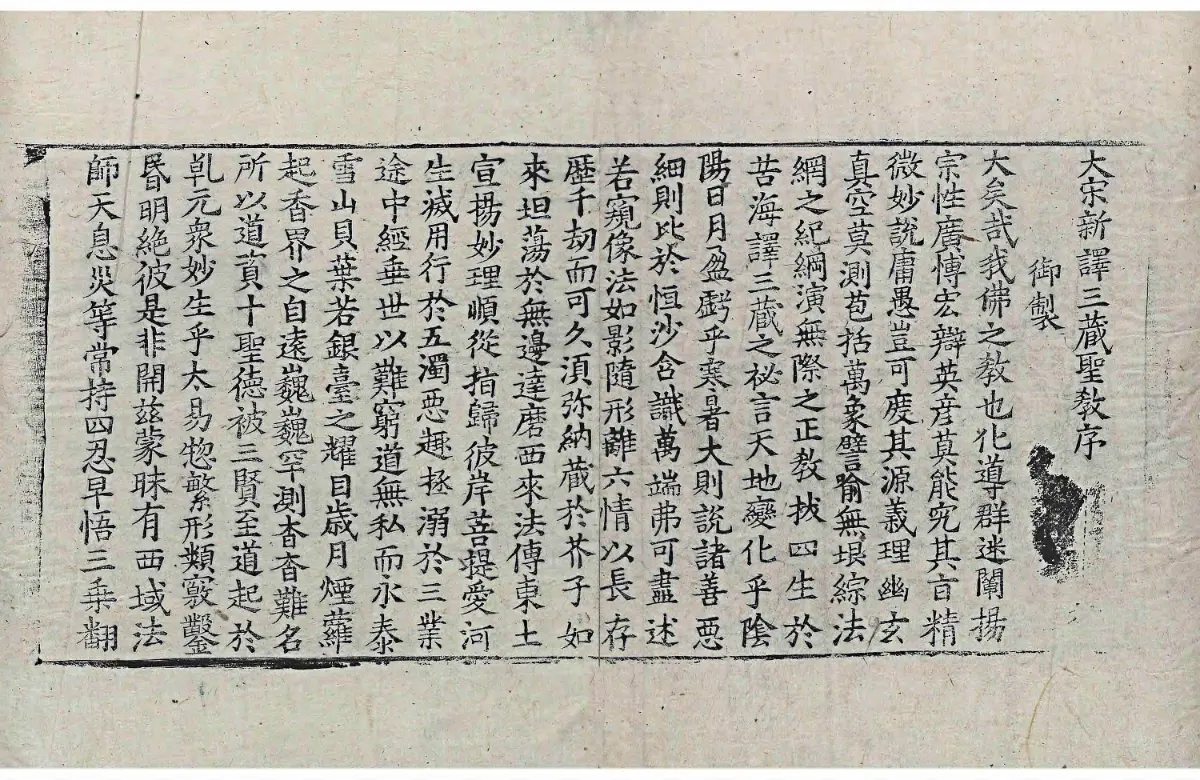 大宋新譯三藏聖教序
御製
大矣哉我佛之教也化導群迷闡揚
宗性廣博宏辯英彥莫能究其旨精
微妙說庸愚豈可度其源義理幽玄
真空莫測苞括萬象譬喻無垠綜法
網之紀綱演無際之正教拔四生於
苦海譯三藏之祕言天地變化乎陰
陽日月盈虧乎寒暑大則說諸善惡
細則比於恒沙含識萬端弗可盡述
若窺像法如影隨形離六情以長存
歷千劫而可久湏弥納藏於芥子如
來坦蕩於無邊達磨西來法傳東土
宣揚妙理順從指歸彼岸菩提愛河
生滅用行於五濁惡趣拯溺於三業
途中經垂世以難窮道無私而永泰
雪山貝葉若銀臺之耀目歲月煙蘿
起香界之自遠巍巍罕測杳杳難名
所以道資十聖德被三賢至道起於
乹元衆妙生乎太易惣繁形類竅鑿
昬明絶彼是非開兹蒙昧有西域法
師天息災等常持四忍早悟三乗翻